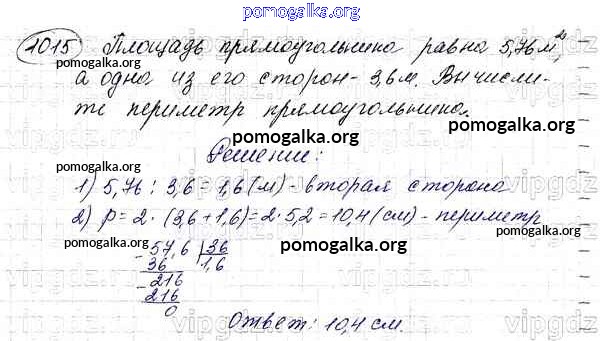 pomogalka.org
1015 Площадь прямоугольника равна 5,76 м²,
pomogalka.org pomogalka.org
а одна из его сторон - 3,6 м. Вычисли-
те периметр прямоугольника.
pomogalka.org
pomogalka.org
Решение:
pomogalka.org
1) 5,76 : 3,6 = 1,6 (м) - вторая сторона
2) P = 2 · (3,6 + 1,6) = 2 · 5,2 = 10,4 (см) - периметр
pomogalka.org pomogalka.org pomogalka.org
- 57,6 | 36
36 1,6
- 216
216
0
Ответ: 10,4 см.
vipgdz